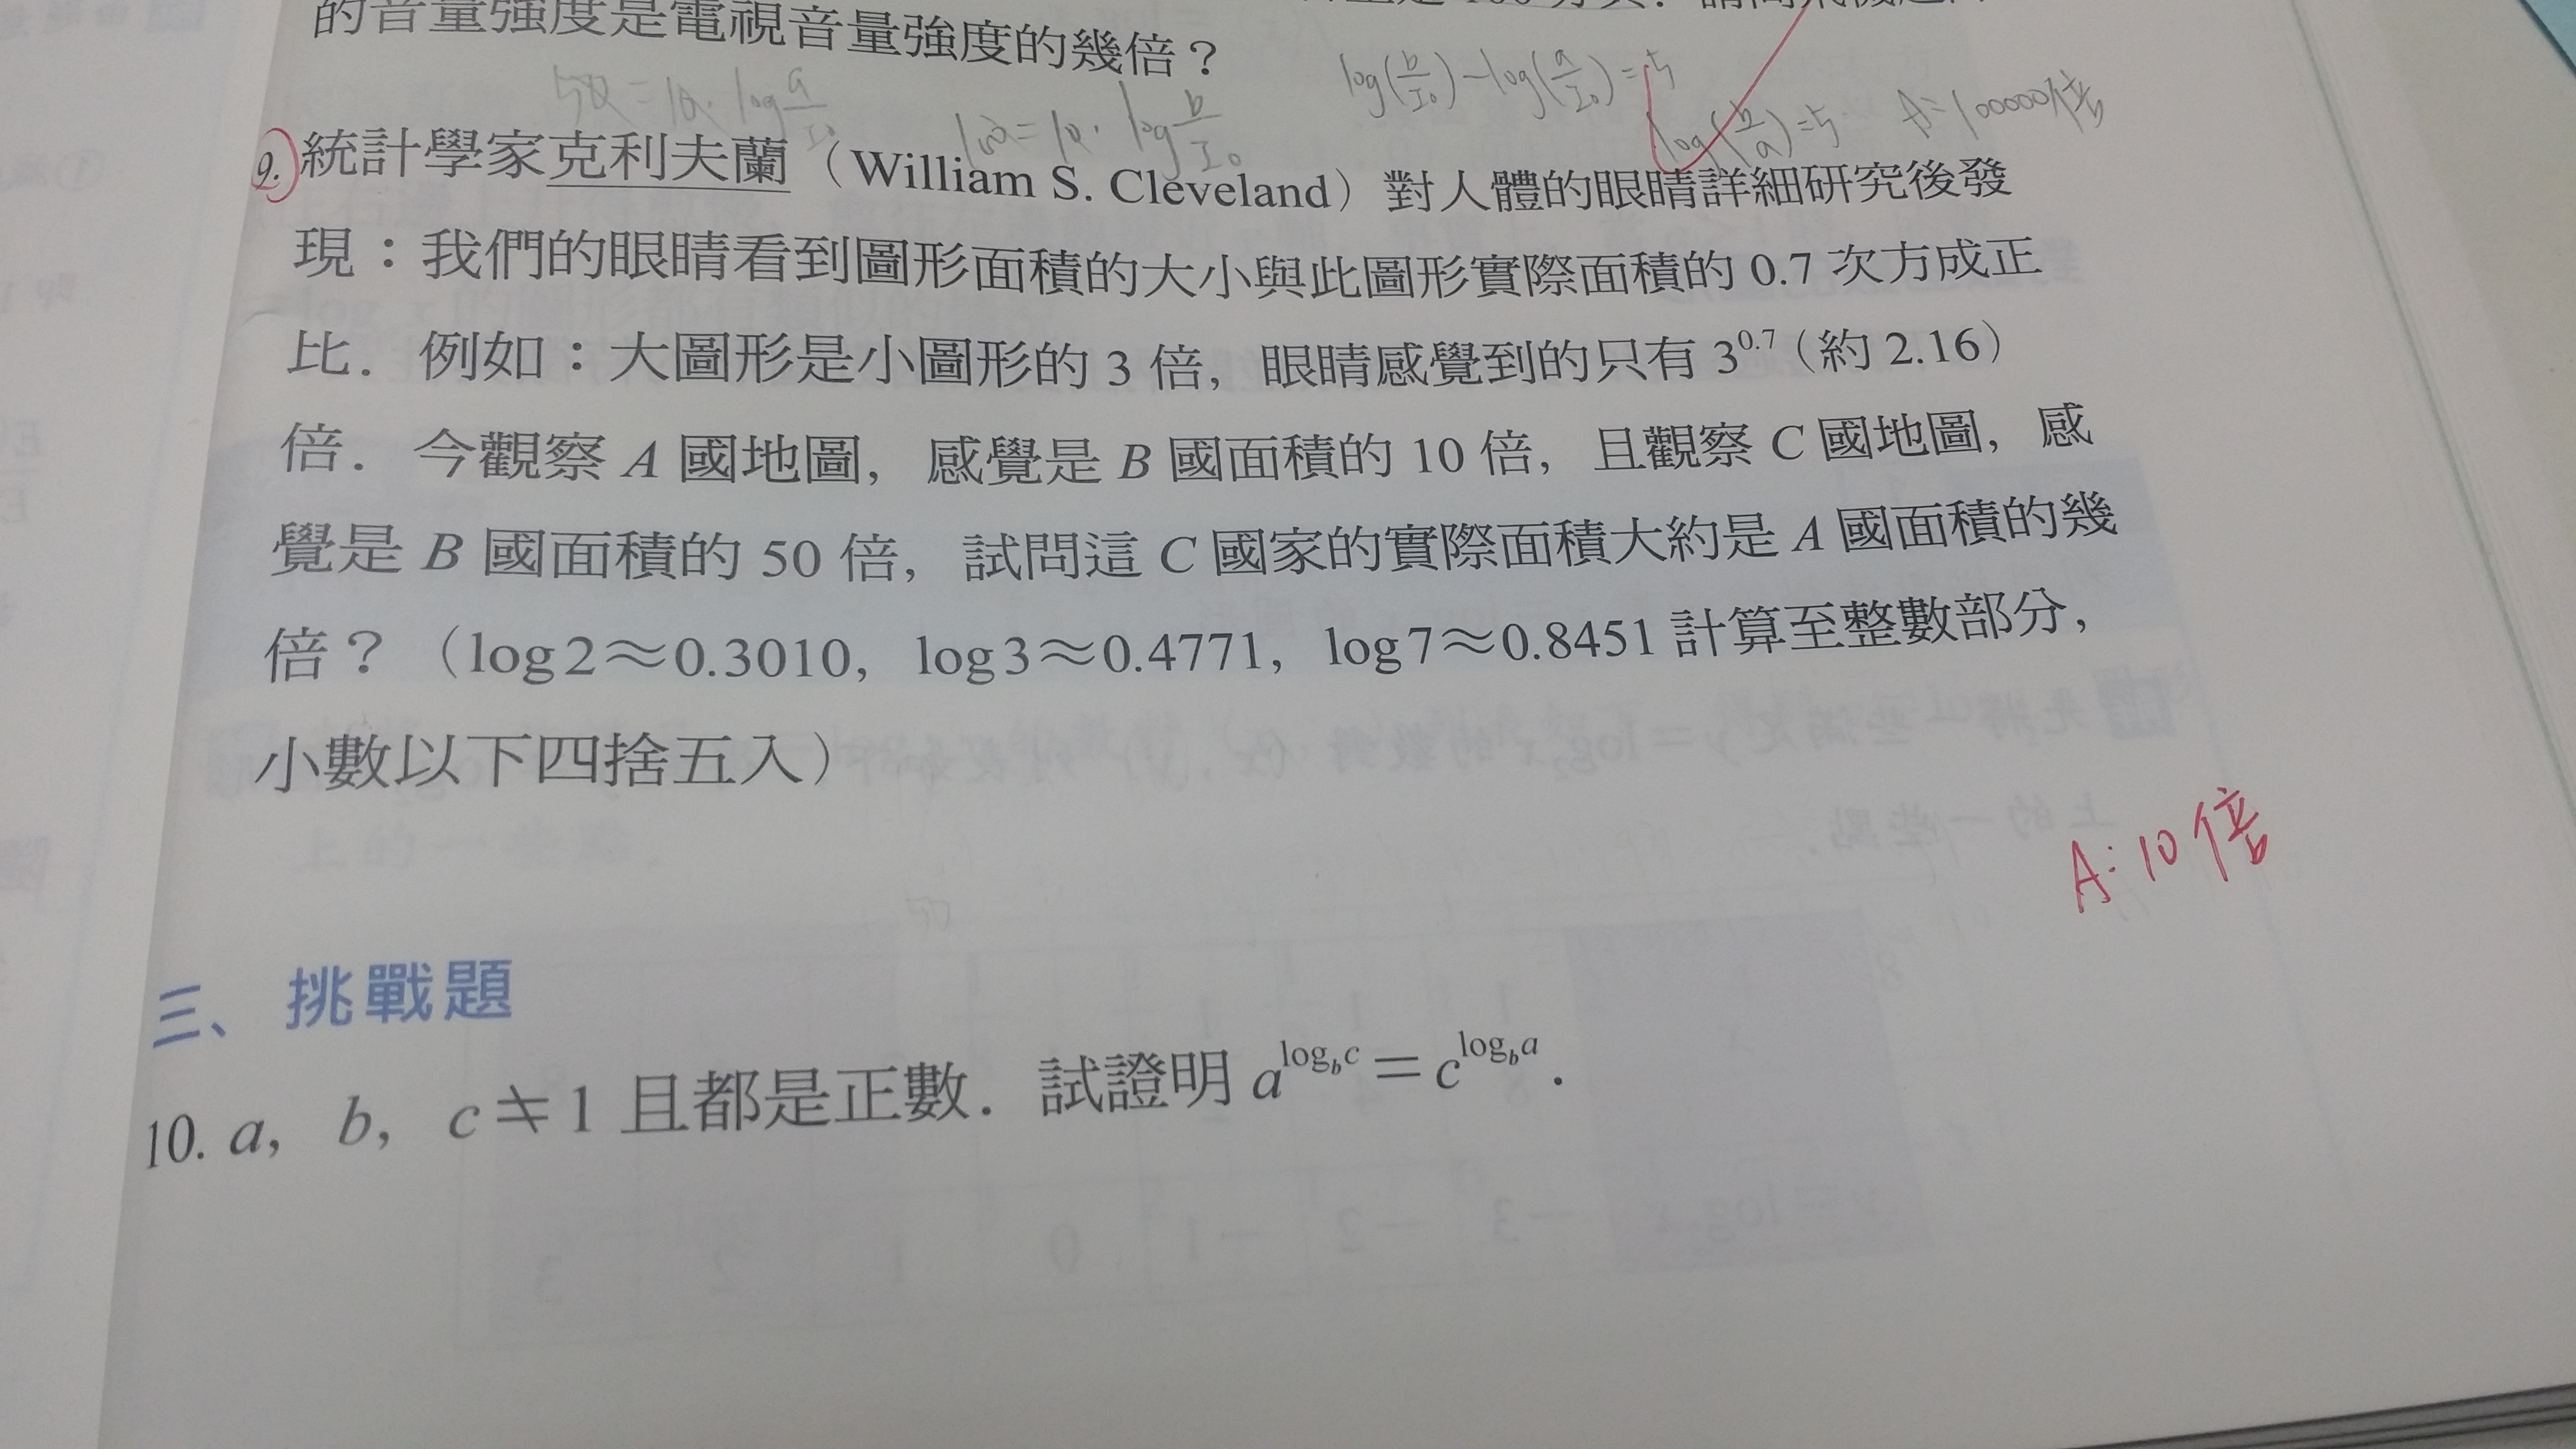 的音量強度是電視音量強度的幾倍？
log(b/I₀)-log(a/I₀)=5
log(b/a)=5 A=100000倍
9. 統計學家克利夫蘭（William S. Cleveland）對人體的眼睛詳細研究後發
現：我們的眼睛看到圖形面積的大小與此圖形實際面積的 0.7 次方成正
比．例如：大圖形是小圖形的 3 倍，眼睛感覺到的只有 3^0.7（約 2.16）
倍．今觀察 A 國地圖，感覺是 B 國面積的 10 倍，且觀察 C 國地圖，感
覺是 B 國面積的 50 倍，試問這 C 國家的實際面積大約是 A 國面積的幾
倍？（log2≈0.3010，log3≈0.4771，log7≈0.8451 計算至整數部分，
小數以下四捨五入）
A:10倍
三、挑戰題
10. a，b，c≠1 且都是正數．試證明 a^(log_b c)=c^(log_b a)．